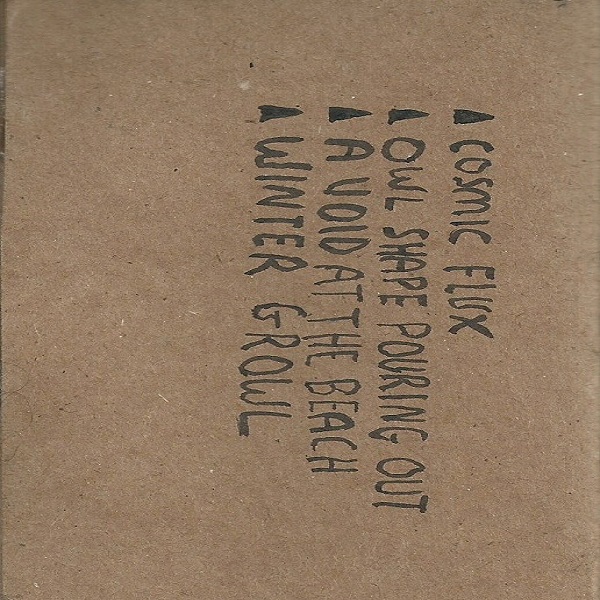 COSMIC FLUX
OWL SHAPE POURING OUT
A VOID AT THE BEACH
WINTER GROWL